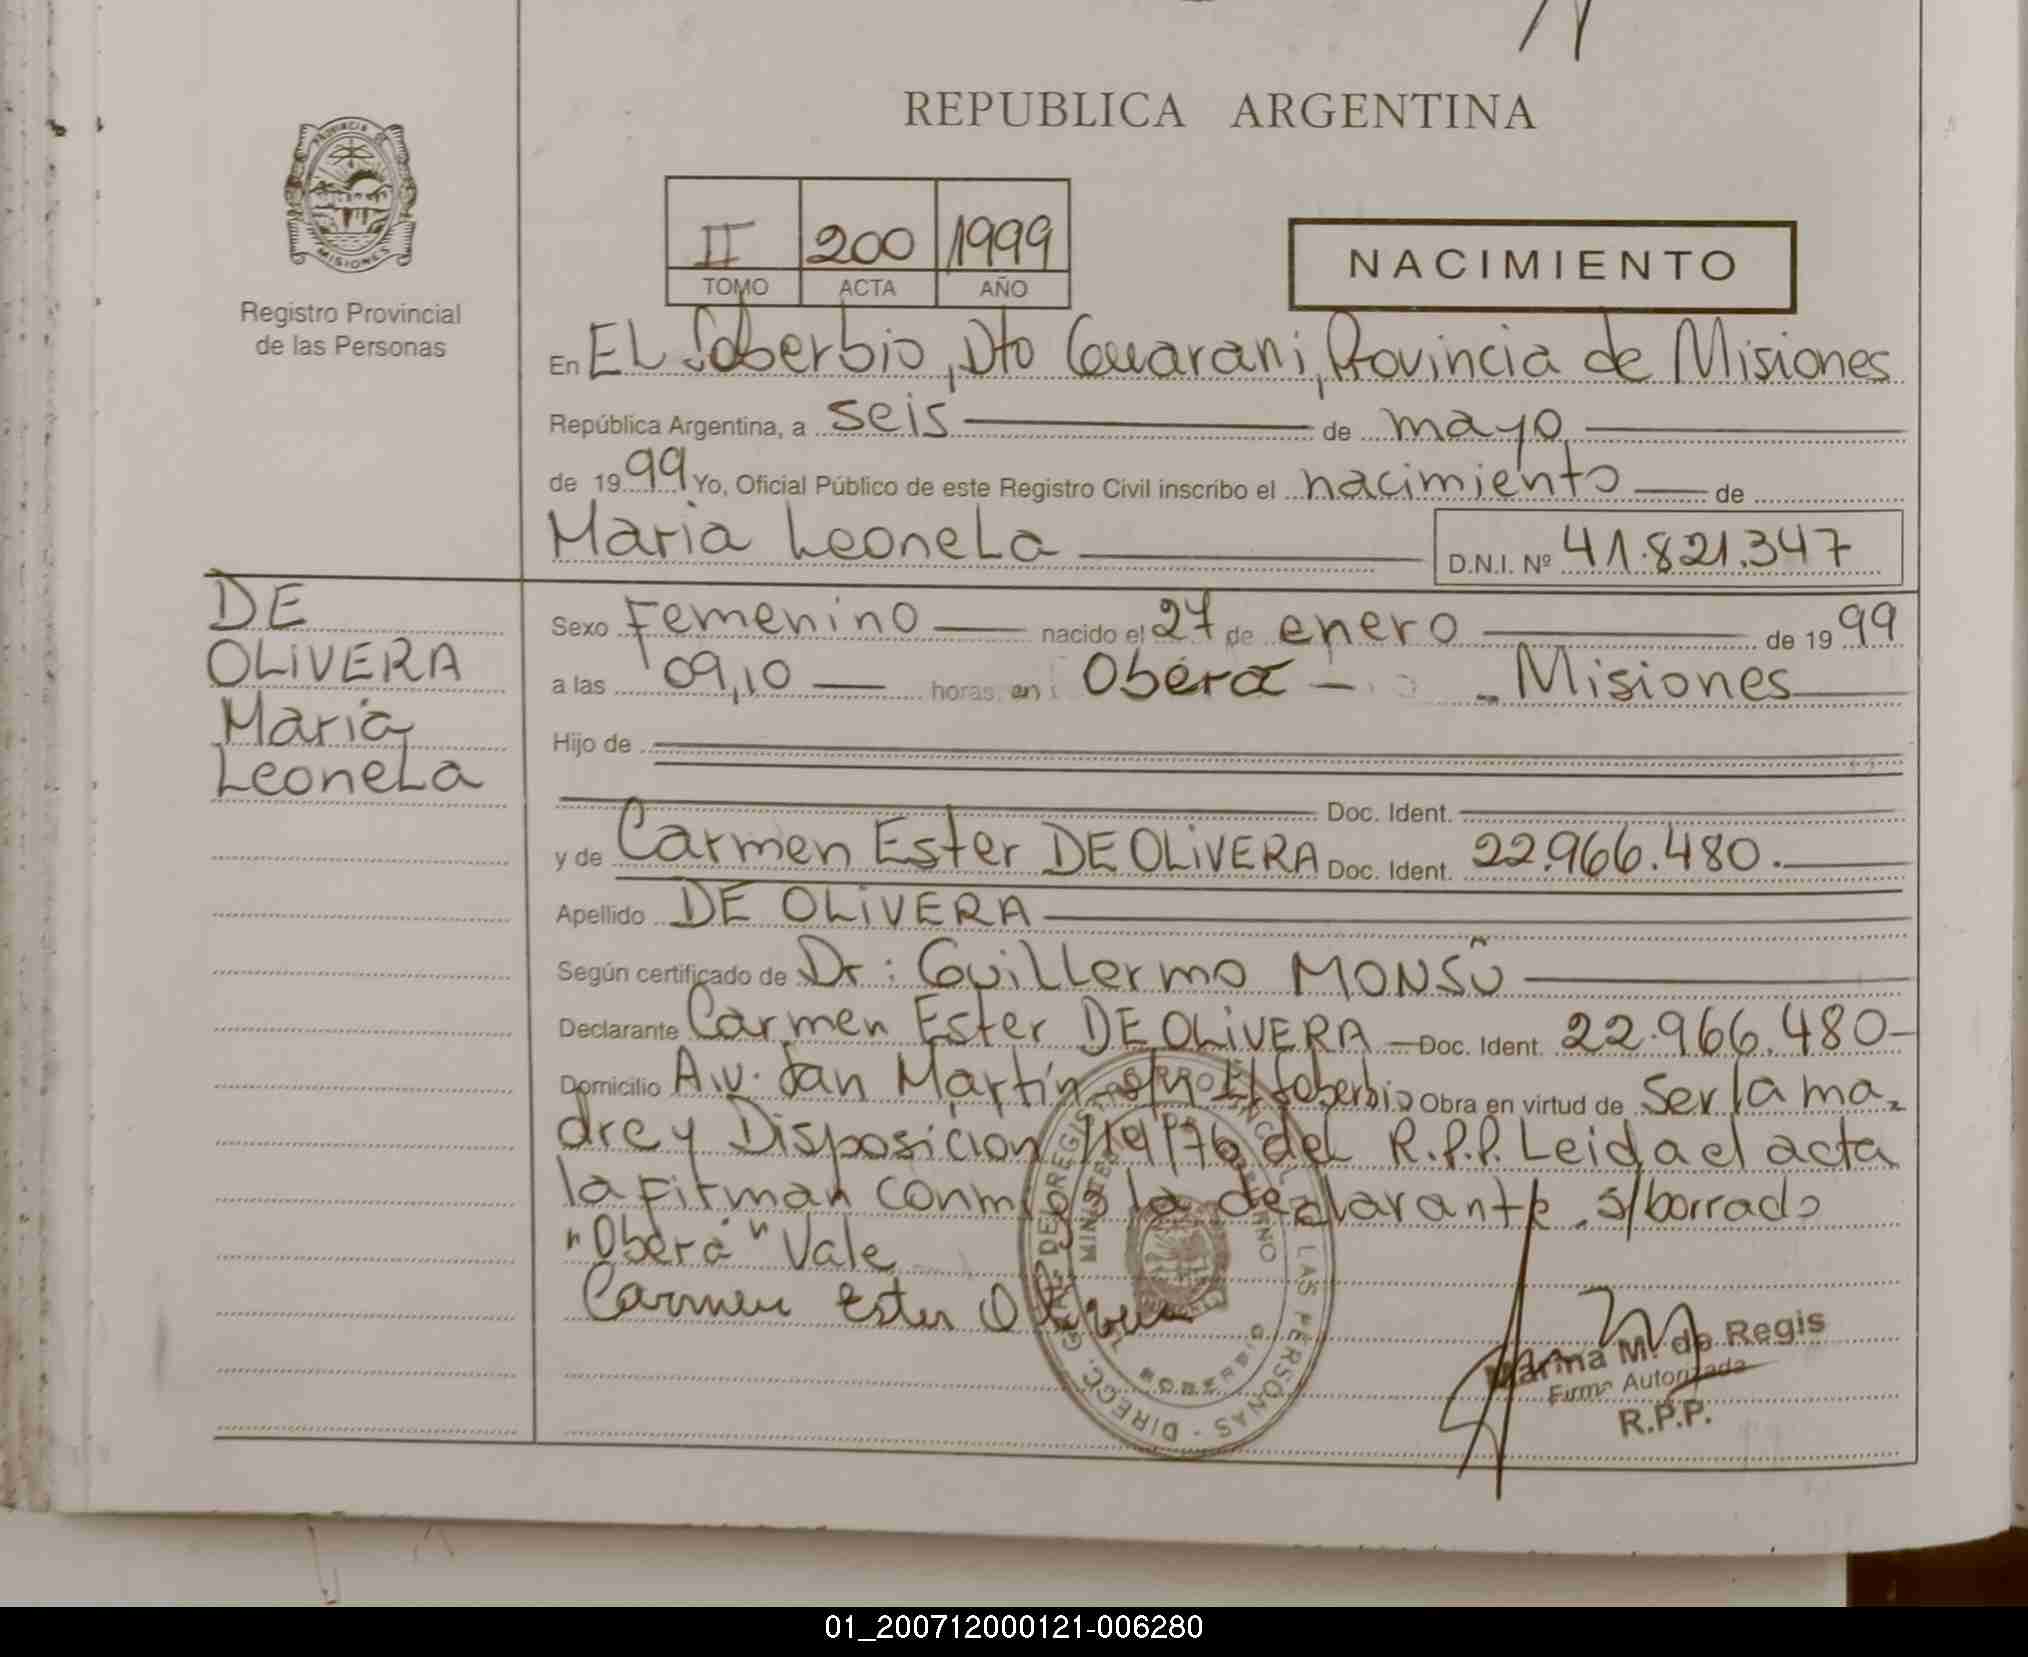 REPUBLICA ARGENTINA
PROVINCIA
MISIONES
Registro Provincial
de las Personas
II 200 1999
TOMO ACTA AÑO
NACIMIENTO
En EL Soberbio, Dto Guarani, Provincia de Misiones
República Argentina, a seis de mayo
de 1999 Yo, Oficial Público de este Registro Civil inscribo el nacimiento de
Maria Leonela D.N.I. Nº 41.821.347
DE
OLIVERA
Maria
Leonela
Sexo Femenino nacido el 27 de enero de 1999
a las 09,10 horas en Oberá Misiones
Hijo de
Doc. Ident.
y de Carmen Ester DE OLIVERA Doc. Ident. 22.966.480.
Apellido DE OLIVERA
Según certificado de Dr: Guillermo MONSÛ
Declarante Carmen Ester DE OLIVERA Doc. Ident. 22.966.480
Domicilio Av. San Martín s/n El Soberbio Obra en virtud de ser la ma-
dre y Disposicion 119/76 del R.P.P. Leida el acta
la firman conmigo la declarante. s/borrado
"Oberá" Vale
Carmen Ester Olivera
DIRECC. GRAL. DEL REGISTRO PROVINCIAL DE LAS PERSONAS
Marina M. de Regis
Firma Autorizada
R.P.P.
01_200712000121-006280